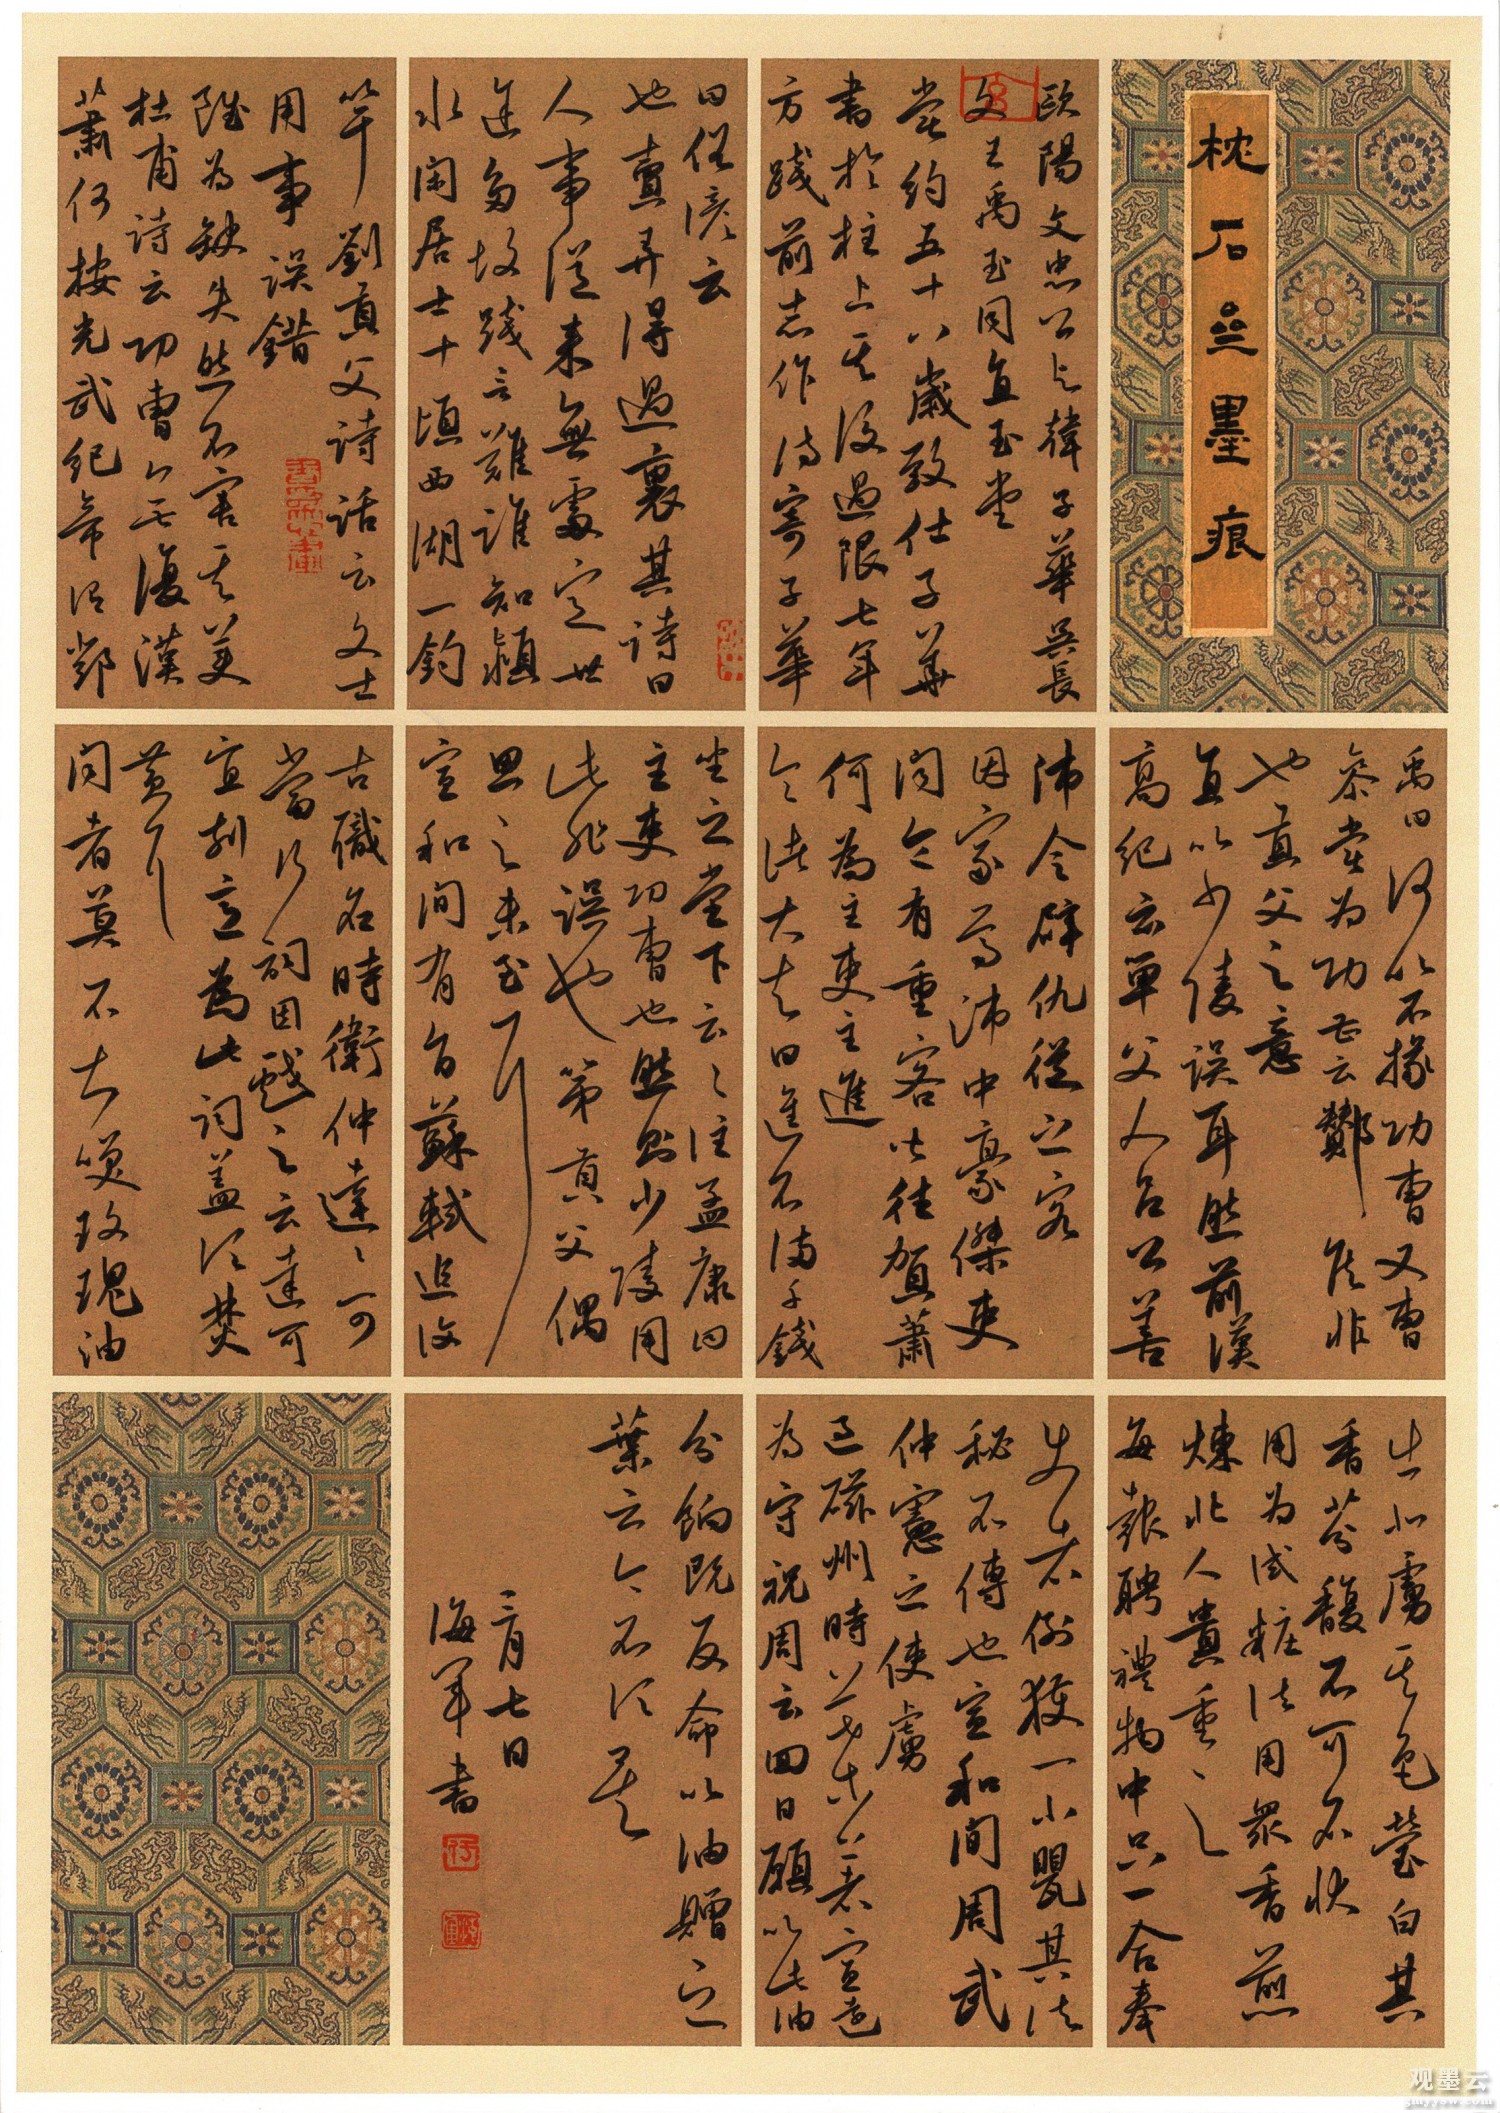 枕石齋墨痕
歐陽文忠公與韓子華吳長
文王禹玉同直玉堂
嘗約五十八歲致仕子華
書於柱上其後過限七年
方踐前志作詩寄子華
曰俗諺云
也賣弄得過裏其詩曰
人事從來無處定世
途多故踐言難誰知潁
水閑居士十頃西湖一釣
竿劉貢父詩話云文士
用事誤錯
雖為缺失然不害其美
杜甫詩云功曹無復漢
蕭何按光武紀帝謂鄧
禹曰何以不掾功曹又曹
參嘗為功曹云酇侯非
也貢父之意
直以少陵誤耳然前漢
高紀云單父人呂公善
沛令辟仇從之客
因家焉沛中豪傑吏
聞令有重客皆往賀蕭
何為主吏主進
令諸大夫曰進不滿千錢
坐之堂下云云注孟康曰
主吏功曹也然則少陵用
此非誤也第貢父偶
思之未至耳
宣和間有旨蘇軾追復
古職名時衛仲達達可
當行詞因戲之云達可
宜刻意為此詞蓋須焚
黃耳
聞者莫不大笑玫瑰油
出北虜其色瑩白其
香芬馥不可名狀
用為試粧法用眾香煎
煉北人貴重之
每報聘禮物中只一合奉
使者例獲一小罌其法
秘不傳也宣和間周武
仲憲之使虜
過磁州時葉著宣遠
為守祝周云回日願以此油
分餉既反命以油贈之
葉云今不須矣
三月七日
海軍書
观墨云
gmyyow.com